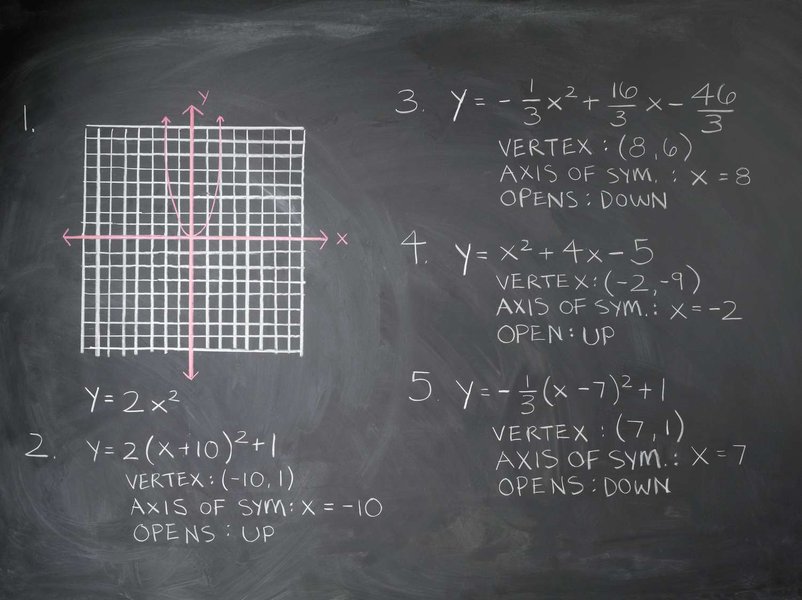 1.
Y
X
Y = 2x²
2. Y = 2(x+10)²+1
VERTEX : (-10, 1)
AXIS OF SYM: X = -10
OPENS : UP
3. Y = - 1/3 x² + 16/3 x - 46/3
VERTEX : (8, 6)
AXIS OF SYM. : X = 8
OPENS : DOWN
4. Y = x² + 4x - 5
VERTEX : (-2, -9)
AXIS OF SYM. : X = -2
OPEN : UP
5. Y = - 1/3 (x - 7)² + 1
VERTEX : (7, 1)
AXIS OF SYM. : X = 7
OPENS : DOWN